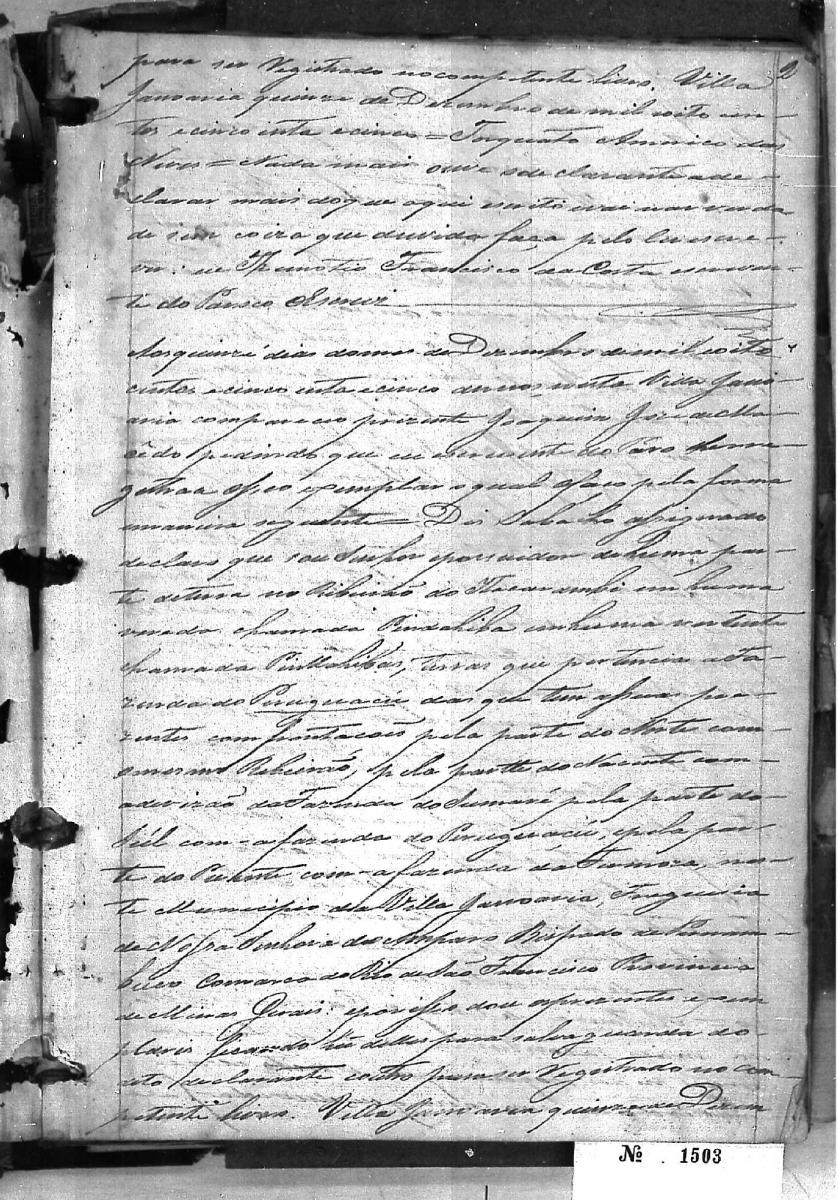 2
para ser Registrado no competente livro. Villa
Januaria quinze de Dezembro de mil oito cen-
tos e cinco inta e cinco = Torquato Americo das
Neves = Nada mais ouve o declarante a de-
clarar mais do que aqui escrito vai na verda
de sem coiza que duvida faça pelo leu escre-
vi: eu Francisco da Costa escreven-
te do Paroco Escrevi
Aos quinze dias do mes de Dezembro de mil oito
centos e cinco inta e cinco annos, nesta Villa Janu-
aria compareceo prezente Joaquim Joze de Ma-
cêdo pedindo que eu escrevente do Paroco
o seo exemplar o qual o faço pela forma
maneira seguinte = Diz abaixo assignado
declaro que sou Senhor e possuidor de huma par-
te de terra no Ribeirão do Itacarambi em huma
vereda chamada Pindahiba em huma vertente
chamada Pindahibas, terras que pertencia a Fa-
zenda do Peruguaçú, das que tem as suas pre-
zentes comfrontacoês pela parte do Norte com
o mesmo Ribeirão, pela parte do Nacente com
a devizão da Fazenda do Sumaré pela parte do
Súl com a fazenda do Peruguaçú, e pela par-
te do Puente com a fazenda da, nes-
te Municipio da Villa Januaria, Freguezia
de Nossa Senhora do Amparo Bispado de Parnam-
buco Comarca do Rio de São Francisco Provincia
de Minas Gerais: e por isso dou os prezentes exem
plares ficando hũ delles para salva guarda do
declarante e outro para ser Registrado no com
petente livro. Villa Januaria quinze de Dezem
Nº 1503